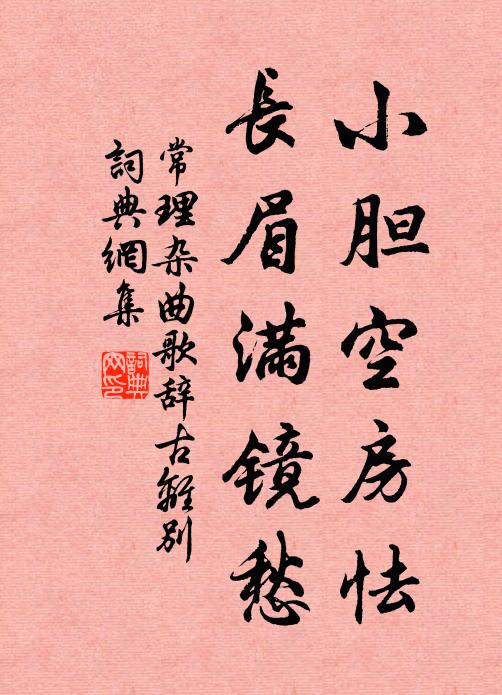 小胆空房怯
長眉滿镜愁
常理杂曲歌辞古離别
詞典網集
詞典网印